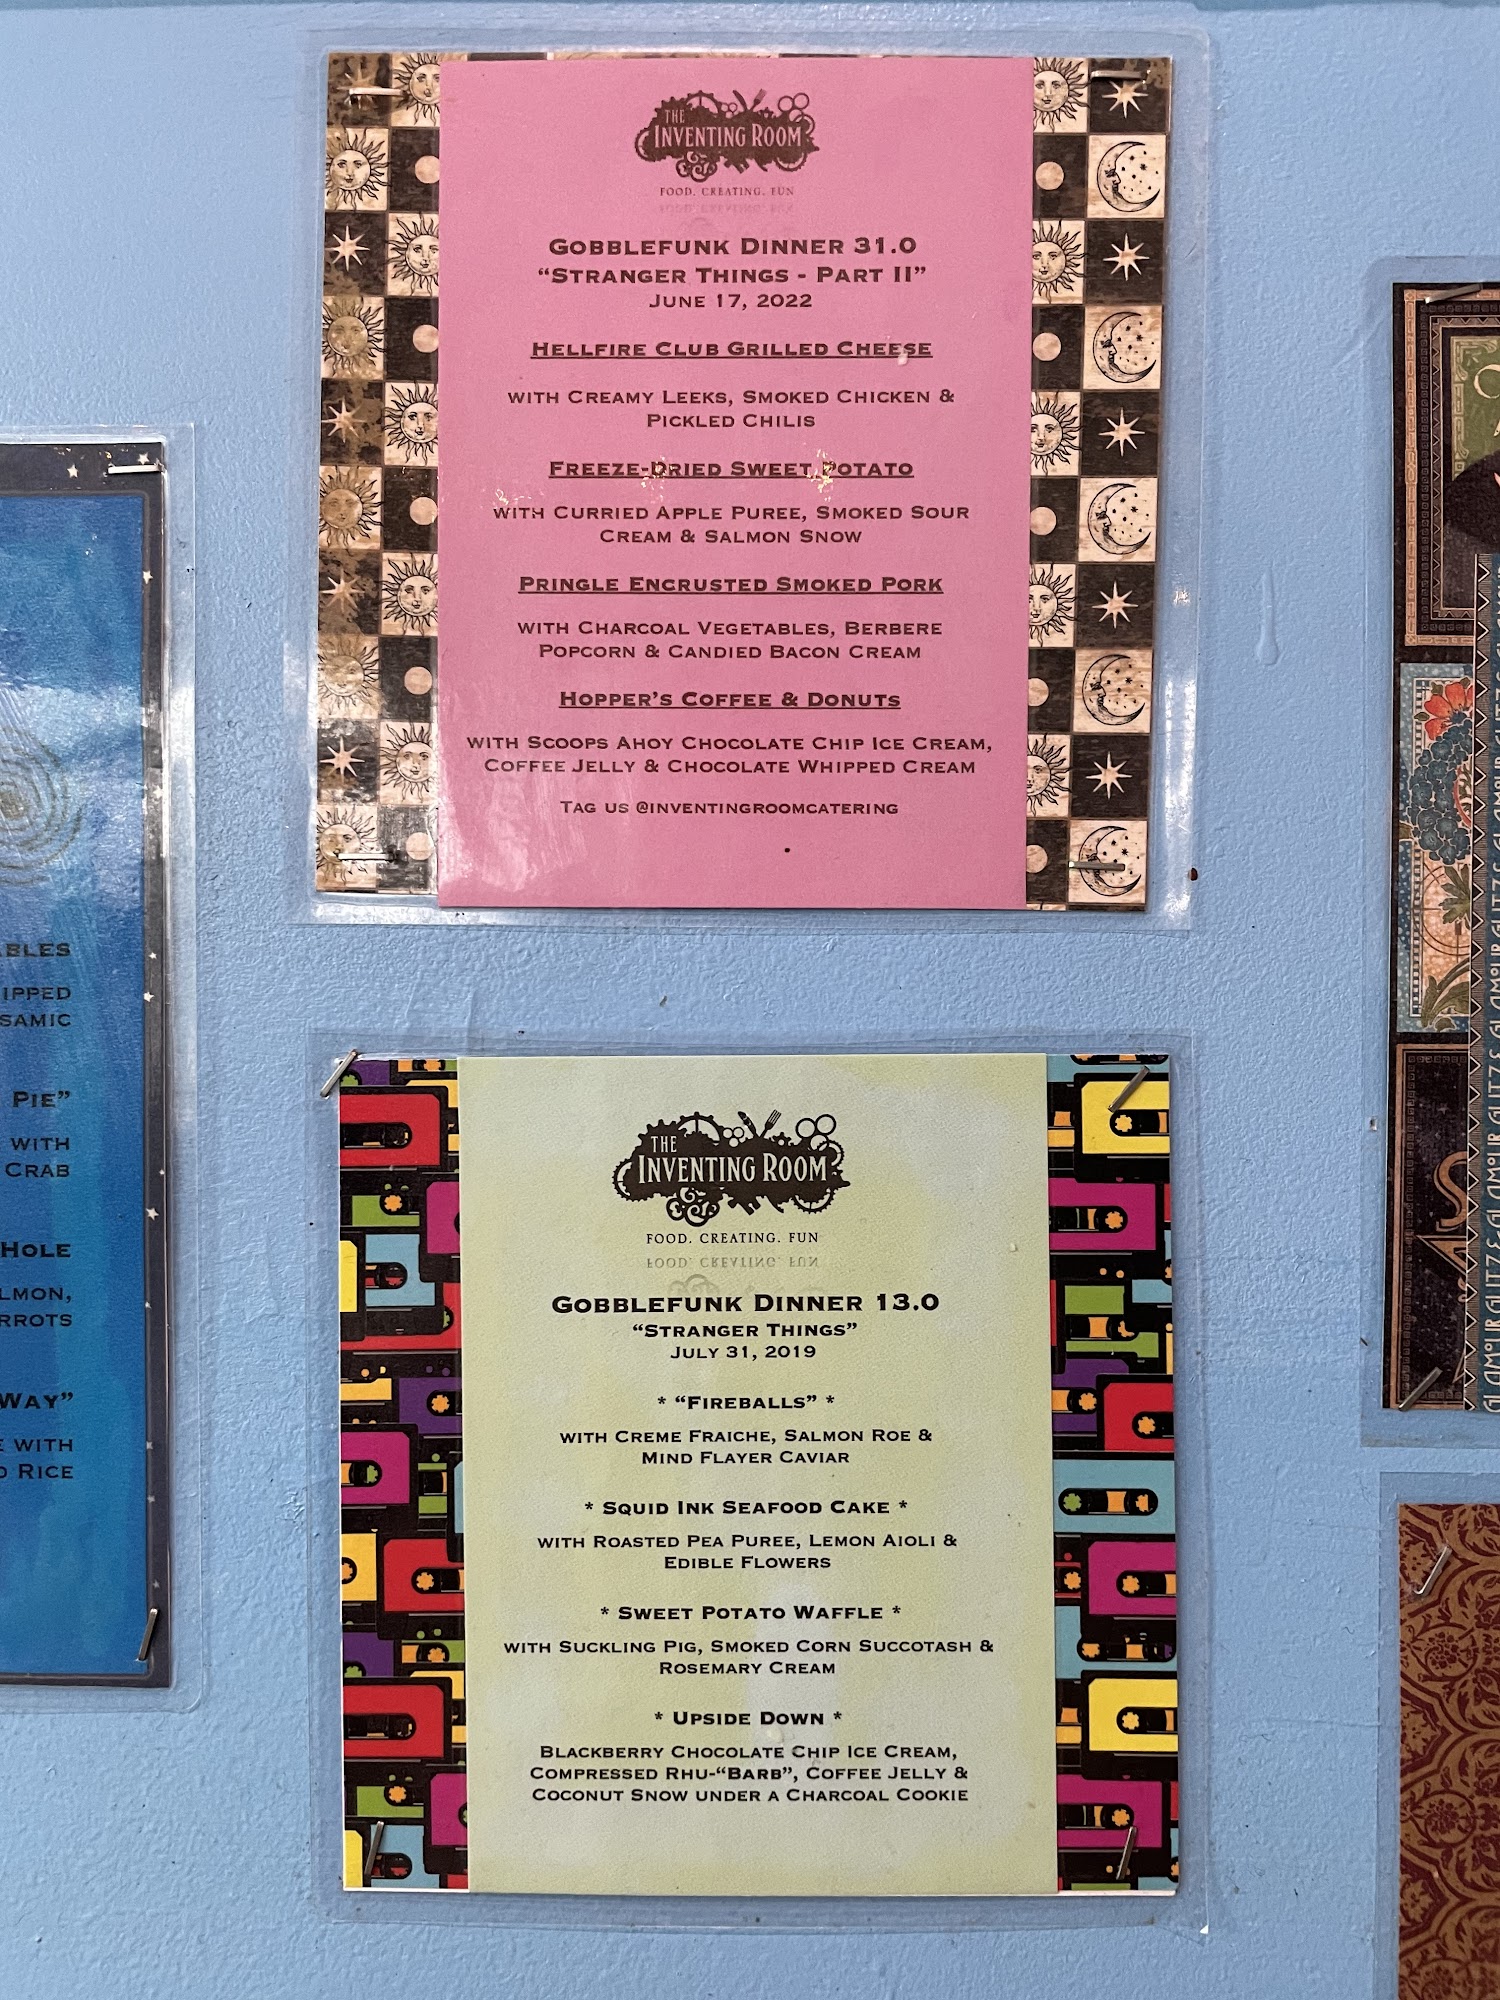 THE
INVENTING ROOM
FOOD. CREATING. FUN
GOBBLEFUNK DINNER 31.0
“STRANGER THINGS - PART II”
JUNE 17, 2022
HELLFIRE CLUB GRILLED CHEESE
WITH CREAMY LEEKS, SMOKED CHICKEN &
PICKLED CHILIS
FREEZE-DRIED SWEET POTATO
WITH CURRIED APPLE PUREE, SMOKED SOUR
CREAM & SALMON SNOW
PRINGLE ENCRUSTED SMOKED PORK
WITH CHARCOAL VEGETABLES, BERBERE
POPCORN & CANDIED BACON CREAM
HOPPER’S COFFEE & DONUTS
WITH SCOOPS AHOY CHOCOLATE CHIP ICE CREAM,
COFFEE JELLY & CHOCOLATE WHIPPED CREAM
TAG US @INVENTINGROOMCATERING
THE
INVENTING ROOM
FOOD. CREATING. FUN
GOBBLEFUNK DINNER 13.0
“STRANGER THINGS”
JULY 31, 2019
* “FIREBALLS” *
WITH CREME FRAICHE, SALMON ROE &
MIND FLAYER CAVIAR
* SQUID INK SEAFOOD CAKE *
WITH ROASTED PEA PUREE, LEMON AIOLI &
EDIBLE FLOWERS
* SWEET POTATO WAFFLE *
WITH SUCKLING PIG, SMOKED CORN SUCCOTASH &
ROSEMARY CREAM
* UPSIDE DOWN *
BLACKBERRY CHOCOLATE CHIP ICE CREAM,
COMPRESSED RHU-“BARB”, COFFEE JELLY &
COCONUT SNOW UNDER A CHARCOAL COOKIE
ABLES
IPPED
SAMIC
PIE”
WITH
CRAB
HOLE
LMON,
RROTS
WAY”
E WITH
D RICE
GLAMOUR GLITZ E GLAMOUR GLITZ E GLAMOUR GLITZ E